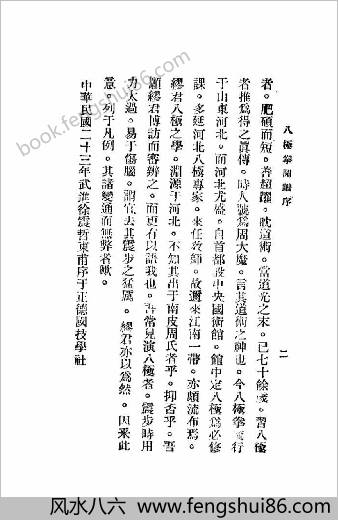 八極拳圖說序
二
者。肥碩而短。善超躍。忱道術。當道光之末。已七十餘歲。習八極
者推爲得之眞傳。時人號爲周大魔。言其道術之神也。今八極拳盛行
于山東河北。而河北尤盛。自首都設中央國術館。館中定八極爲必修
課。多延河北八極專家。來任敎師。故邇來江南一帶。亦頗流布焉。
繆君八極之學。淵源于河北。不知其出于南皮周氏者乎。抑否乎。吾
願繆君博訪而審辨之。而更有以語我也。吾常見演八極者。震步時用
力太過。易于傷腦。謂宜去其震步之猛厲。繆君亦以爲然。因采此
意。列于凡例。其諸變通而無弊者歟。
中華民國二十三年武進徐震哲東甫序于正德國技學社
book.fengshui86.com
风水八六 www.fengshui86.com